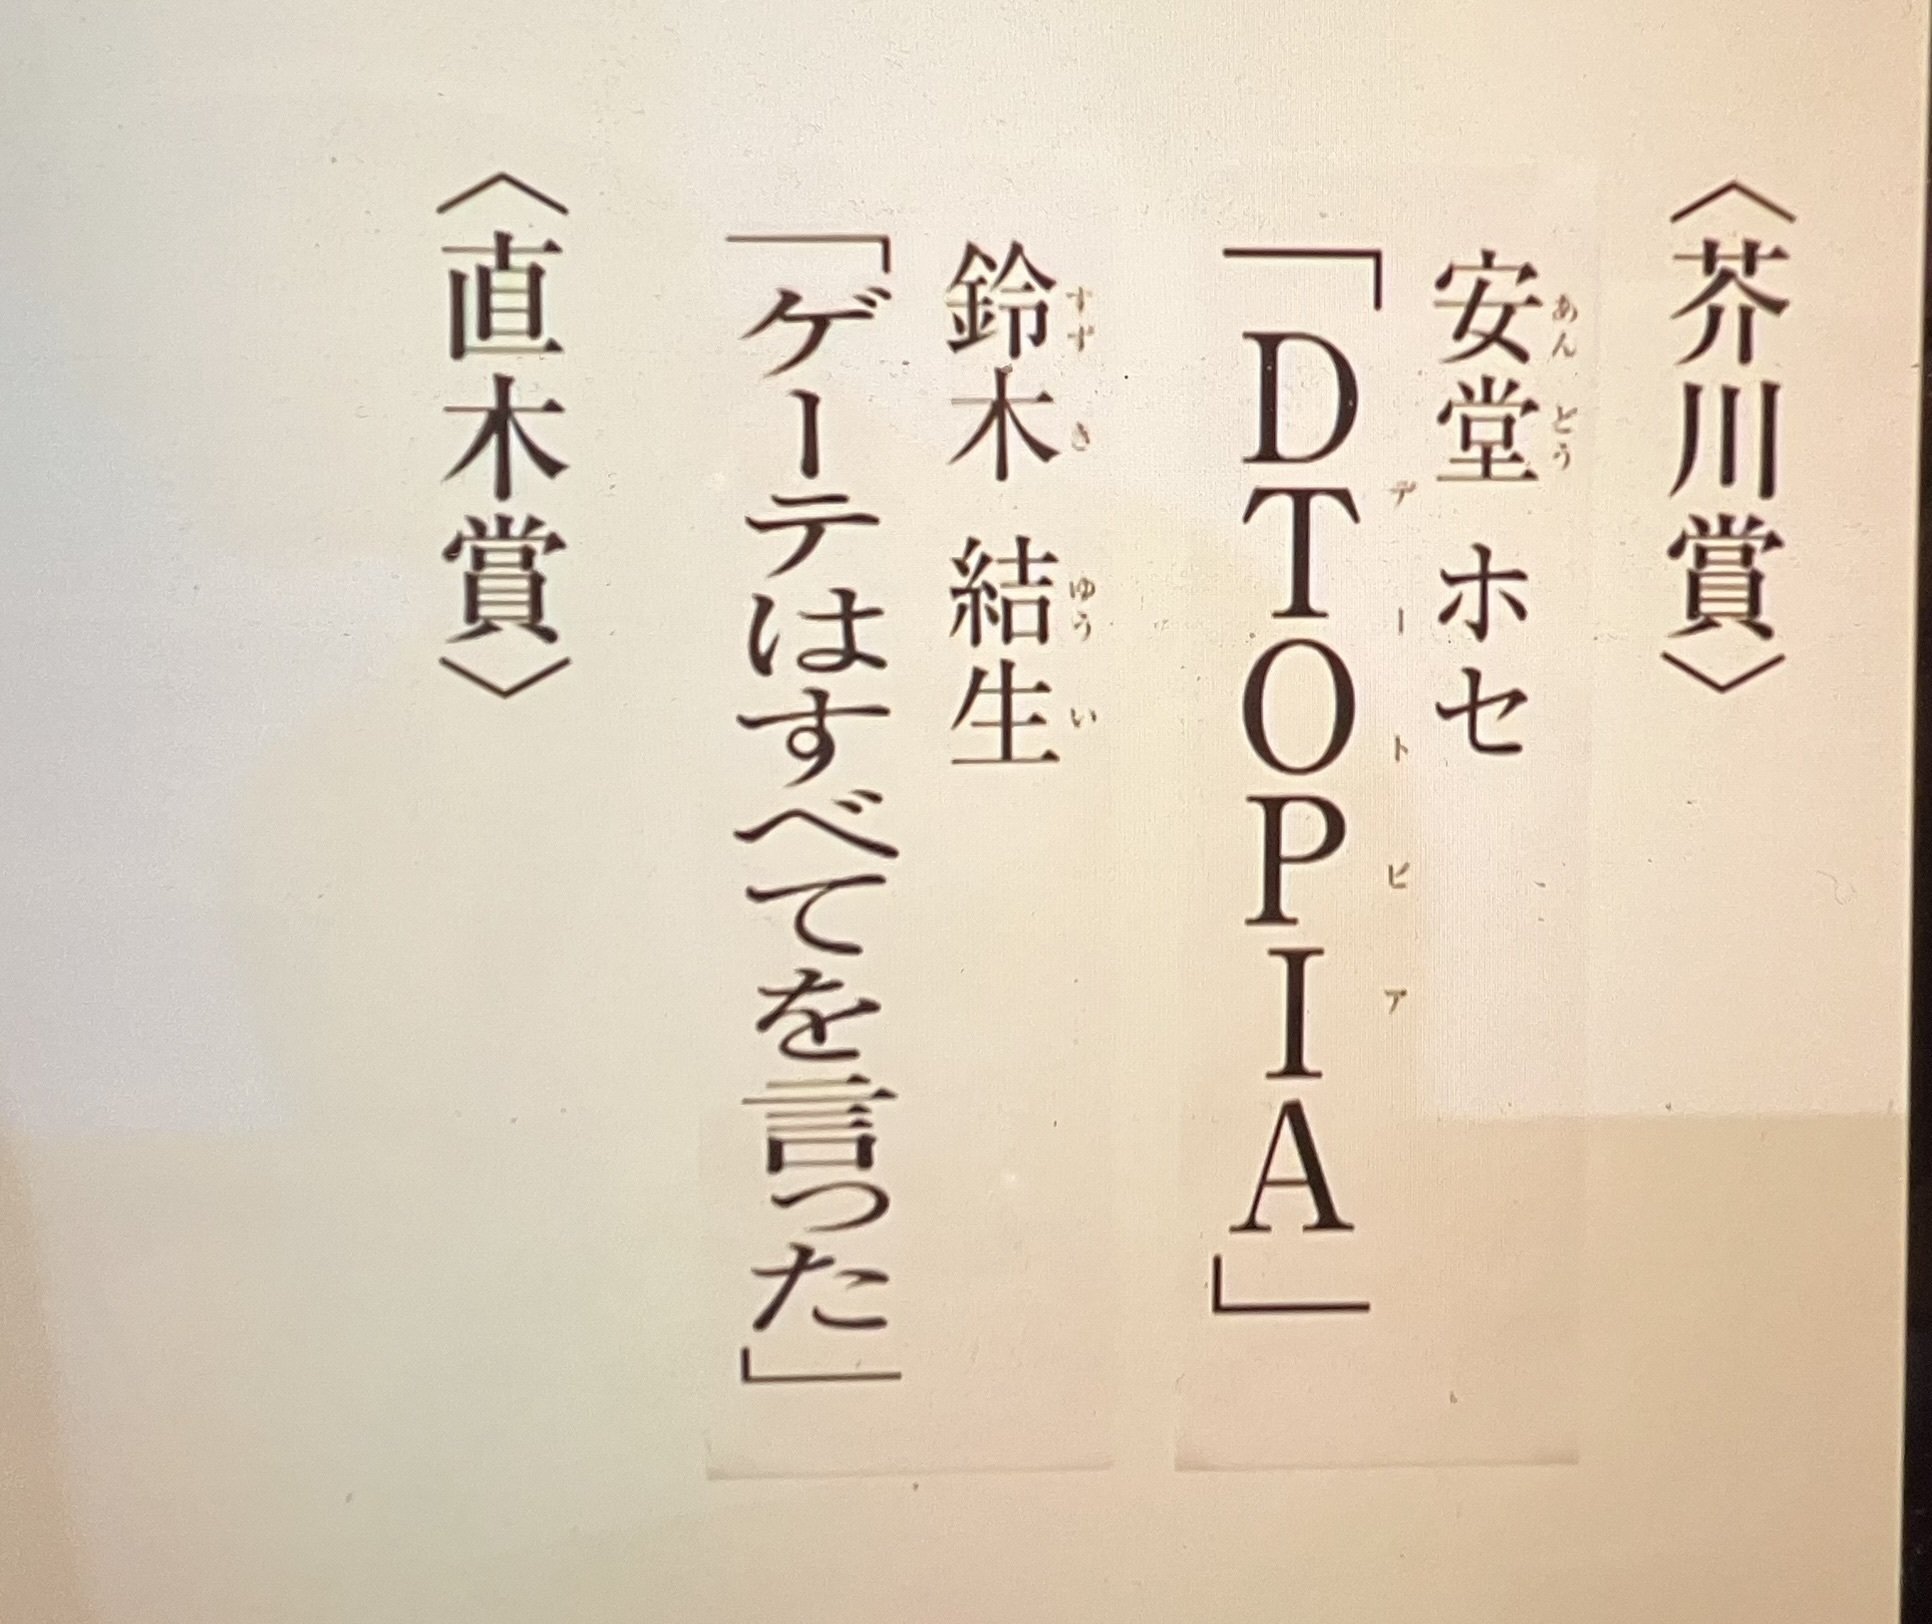 〈芥川賞〉
安堂 ホセ
あんどう
「DTOPIA」
デートピア
鈴木 結生
すずき ゆうい
「ゲーテはすべてを言った」
〈直木賞〉